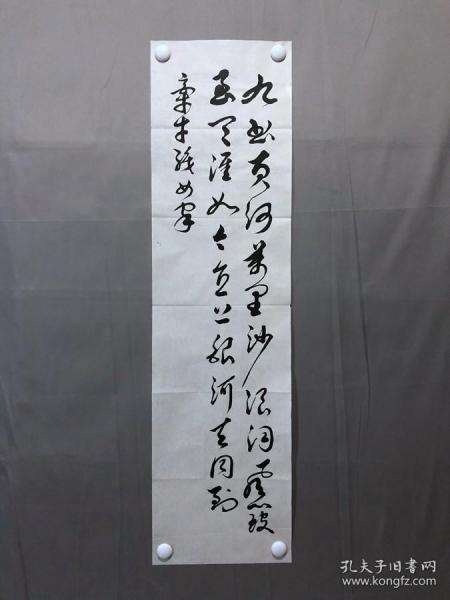 九曲黄河萬里沙浪淘風簸
自天涯如今直上銀河去同到
牽牛織女家
孔夫子旧书网
www.kongfz.com